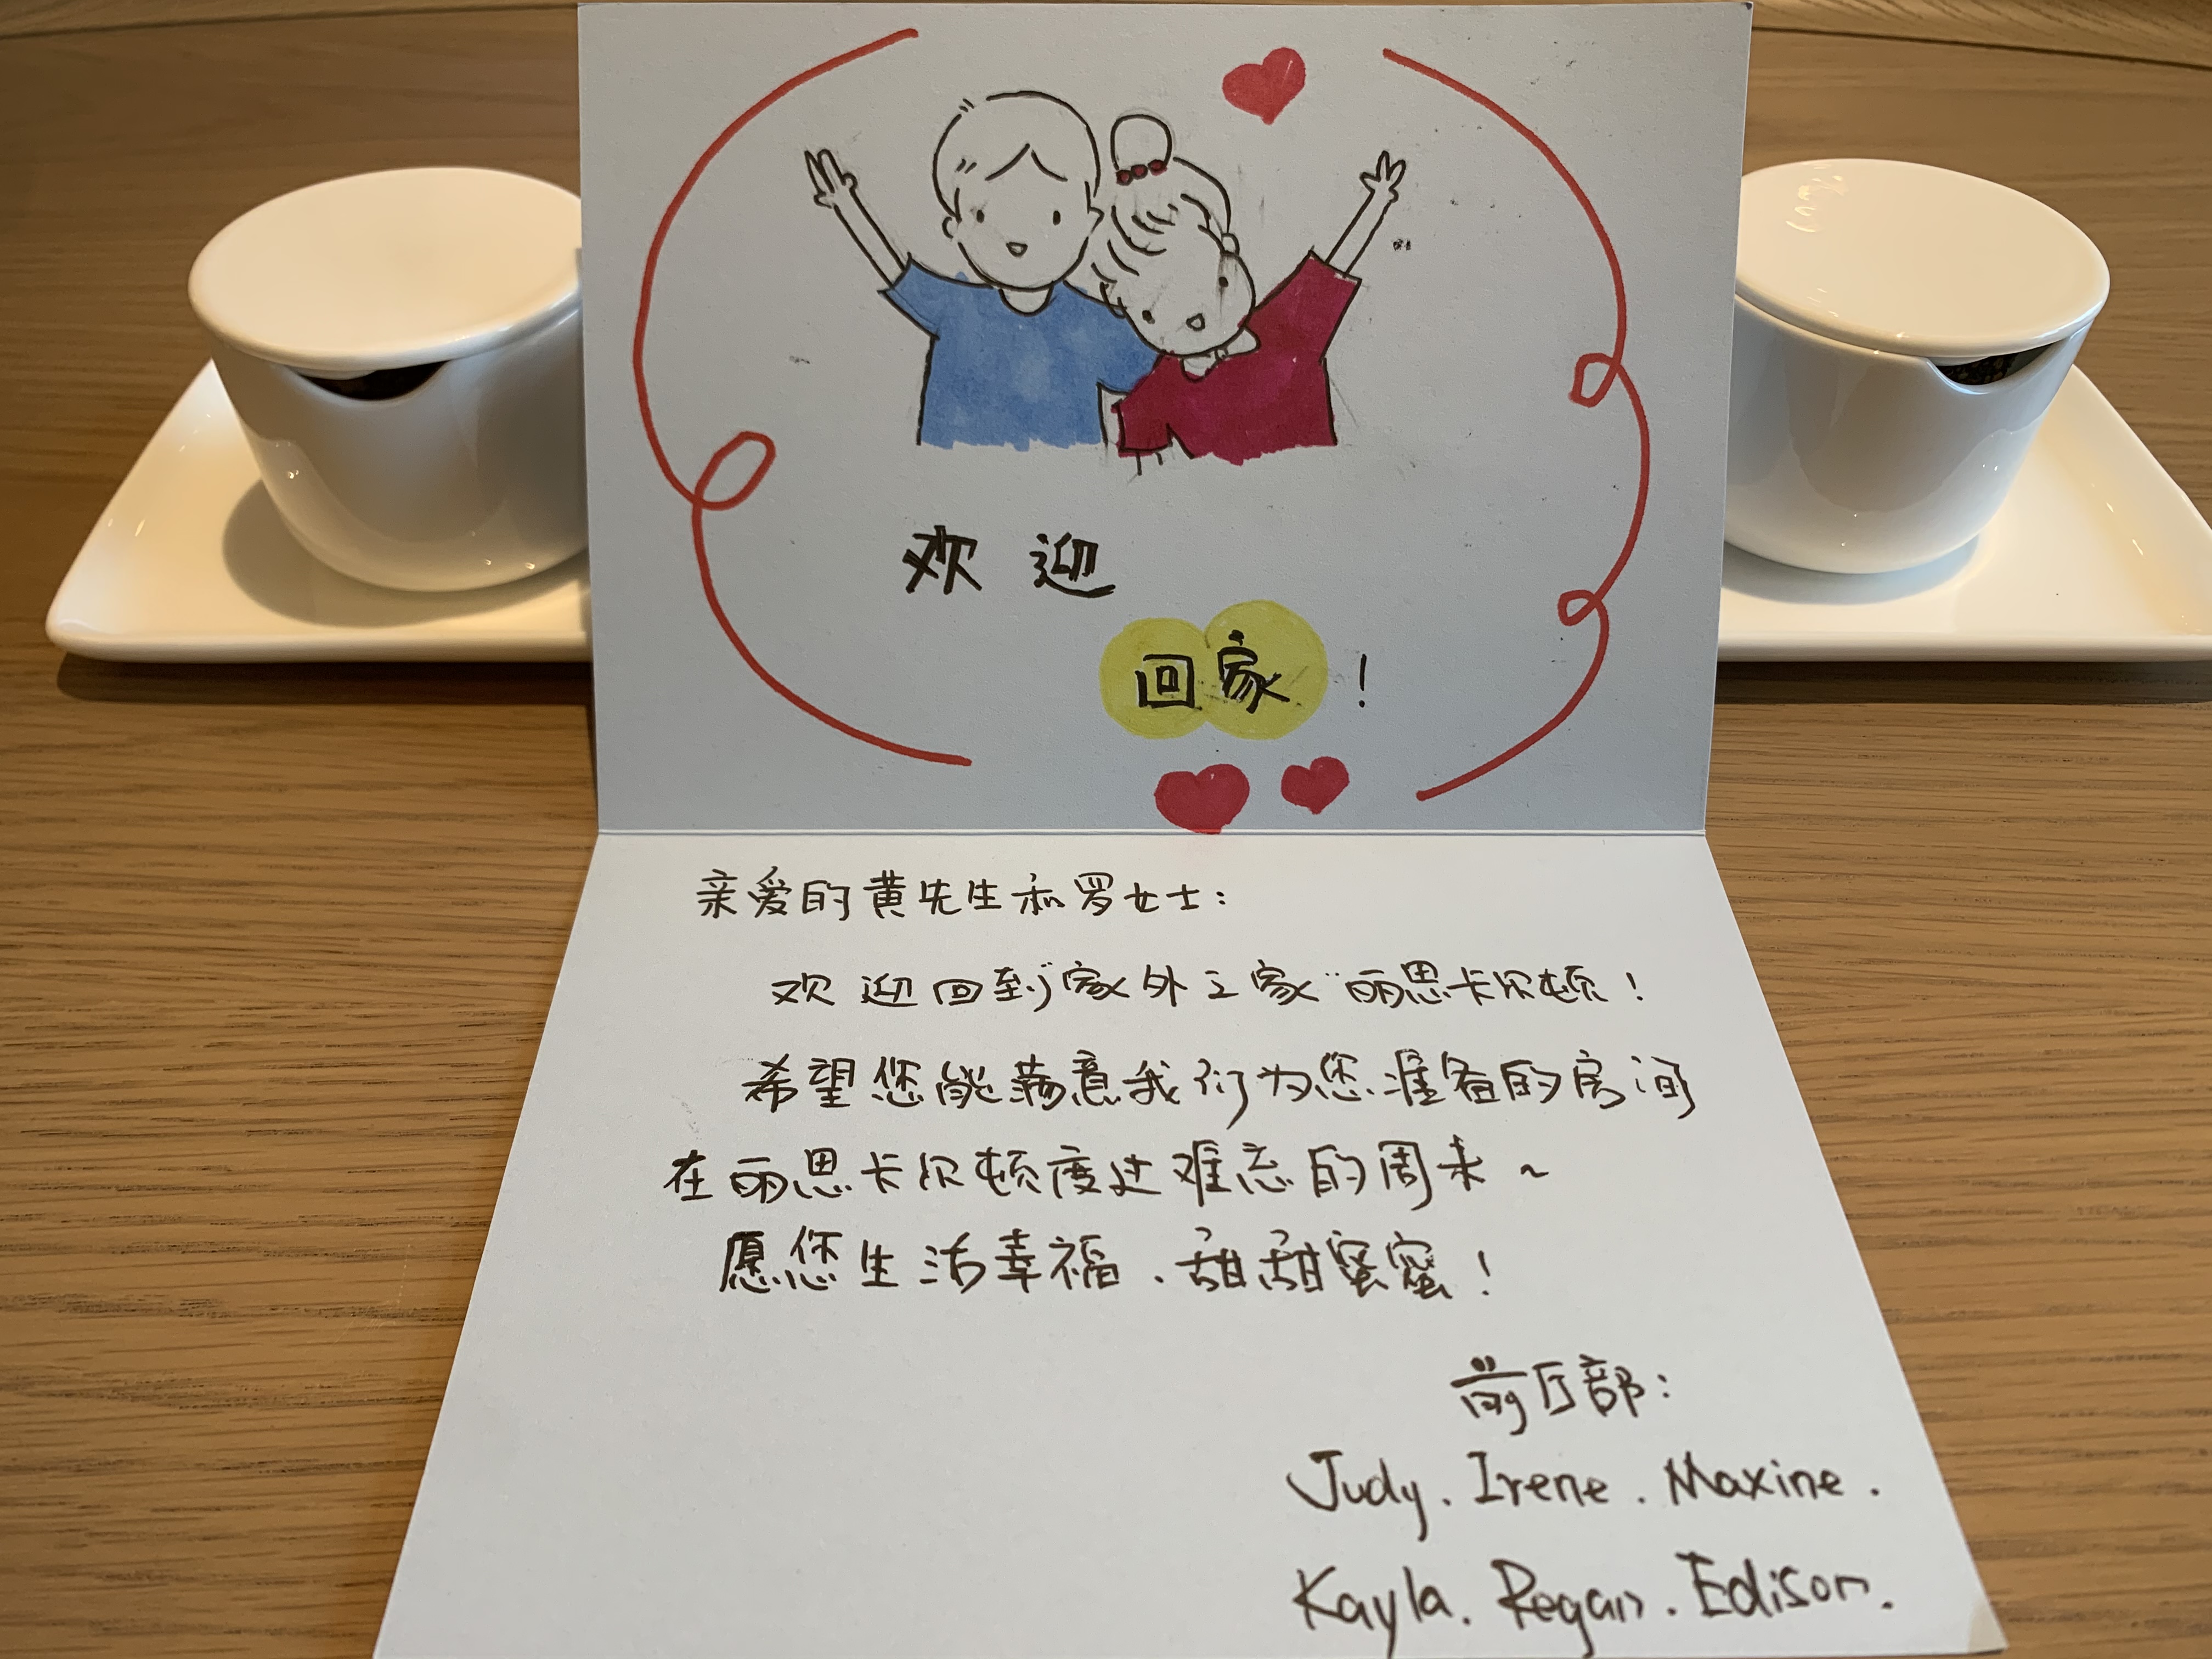 欢迎
回家！
亲爱的黄先生和罗女士：
欢迎回到“家外之家”丽思卡尔顿！
希望您能满意我们为您准备的房间
在丽思卡尔顿度过难忘的周末~
愿您生活幸福、甜甜蜜蜜！
前厅部：
Judy. Irene. Maxine.
Kayla. Regan. Edison.